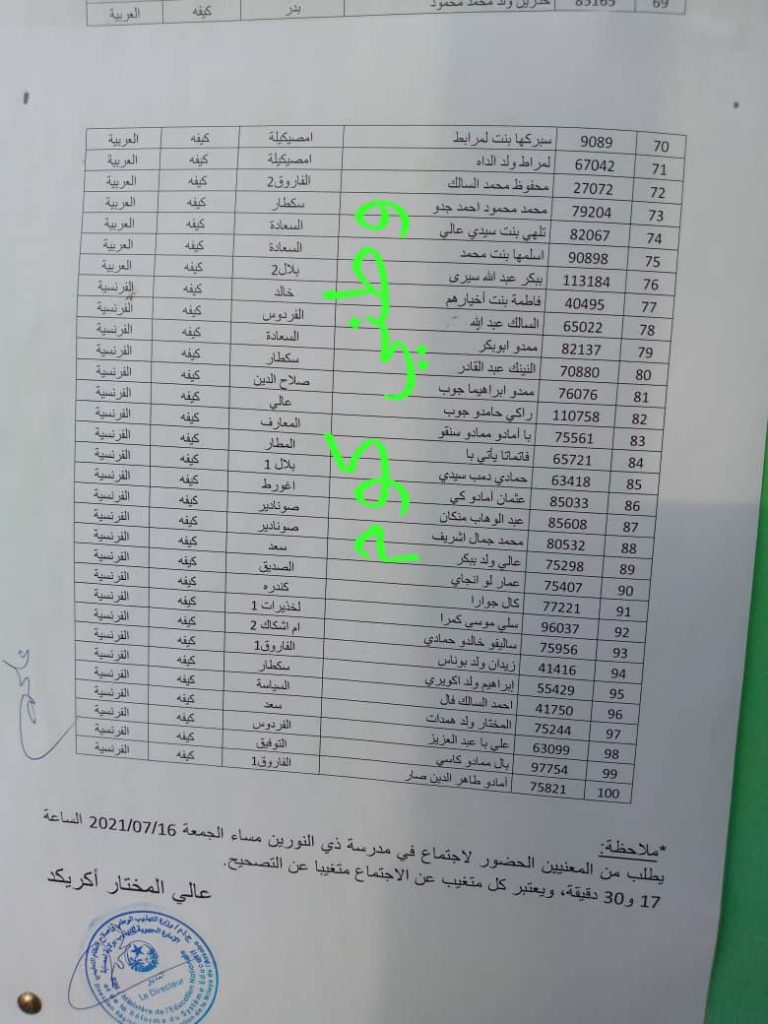 69 85165 ولد محمد محمود بدر كيفه العربية
70 9089 سيركها بنت لمرابط امصيكيلة كيفه العربية
71 67042 لمراط ولد الداه امصيكيلة كيفه العربية
72 27072 محفوظ محمد السالك الفاروق2 كيفه العربية
73 79204 محمد محمود احمد جدو سكطار كيفه العربية
74 82067 تلهي بنت سيدي عالي السعادة كيفه العربية
75 90898 اسلمها بنت محمد السعادة كيفه العربية
76 113184 ببكر عبد الله سيرى بلال2 كيفه العربية
77 40495 فاطمة بنت أخيارهم خالد كيفه الفرنسية
78 65022 السالك عبد الله الفردوس كيفه الفرنسية
79 82137 ممدو ابوبكر السعادة كيفه الفرنسية
80 70880 النينك عبد القادر سكطار كيفه الفرنسية
81 76076 ممدو ابراهيما جوب صلاح الدين كيفه الفرنسية
82 110758 راكي حامدو جوب عالي كيفه الفرنسية
83 75561 با أمادو ممادو سنقو المعارف كيفه الفرنسية
84 65721 فاتماتا يأتي با المطار كيفه الفرنسية
85 63418 حمادي دمب سيدي بلال 1 كيفه الفرنسية
86 85033 عثمان أمادو كي اغورط كيفه الفرنسية
87 85608 عبد الوهاب منكان صونادير كيفه الفرنسية
88 80532 محمد جمال اشريف صونادير كيفه الفرنسية
89 75298 عالي ولد ببكر سعد كيفه الفرنسية
90 75407 عمار لو انجاي الصديق كيفه الفرنسية
91 77221 كال جوارا كندره كيفه الفرنسية
92 96037 سلي موسى كمرا لخذيرات 1 كيفه الفرنسية
93 75956 ساليفو خالدو حمادي ام اشكاك 2 كيفه الفرنسية
94 41416 زيدان ولد بوناس الفاروق1 كيفه الفرنسية
95 55429 إبراهيم ولد اكويري سكطار كيفه الفرنسية
96 41750 احمد السالك فال السياسة كيفه الفرنسية
97 75244 المختار ولد همدات سعد كيفه الفرنسية
98 63099 علي با عبد العزيز الفردوس كيفه الفرنسية
99 97754 بال ممادو كاسي التوفيق كيفه الفرنسية
100 75821 أمادو طاهر الدين صار الفاروق1 كيفه الفرنسية
وطني كوم
*ملاحظة:
يطلب من المعنيين الحضور لاجتماع في مدرسة ذي النورين مساء الجمعة 2021/07/16 الساعة
17 و30 دقيقة، ويعتبر كل متغيب عن الاجتماع متغيبا عن التصحيح.
عالي المختار أكريكد
Le Directeur
Ministère de l'Education Nationale
et de la Réforme du Système